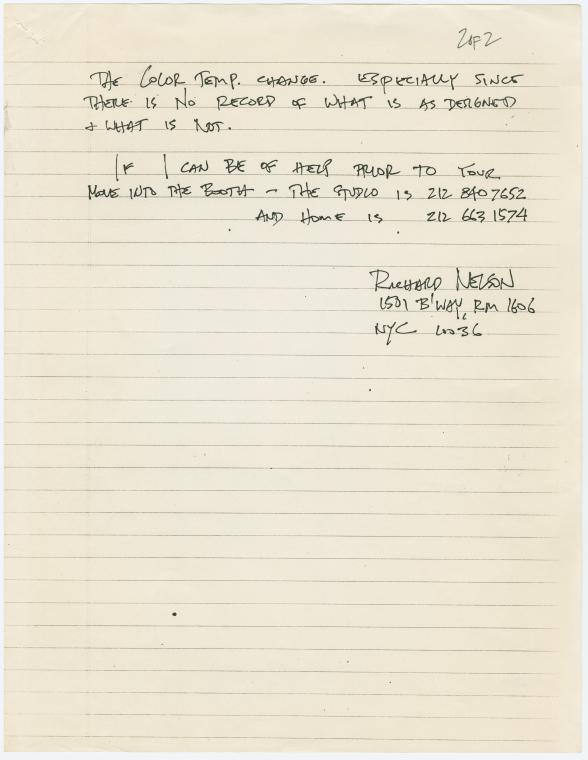 2 OF 2
THE COLOR TEMP. CHANGE. ESPECIALLY SINCE
THERE IS NO RECORD OF WHAT IS AS DESIGNED
+ WHAT IS NOT.
IF I CAN BE OF HELP PRIOR TO YOUR
MOVE INTO THE BOOTH – THE STUDIO IS 212 840 7652
AND HOME IS 212 663 1574
RICHARD NELSON
1501 B'WAY, RM 1606
NYC 10036